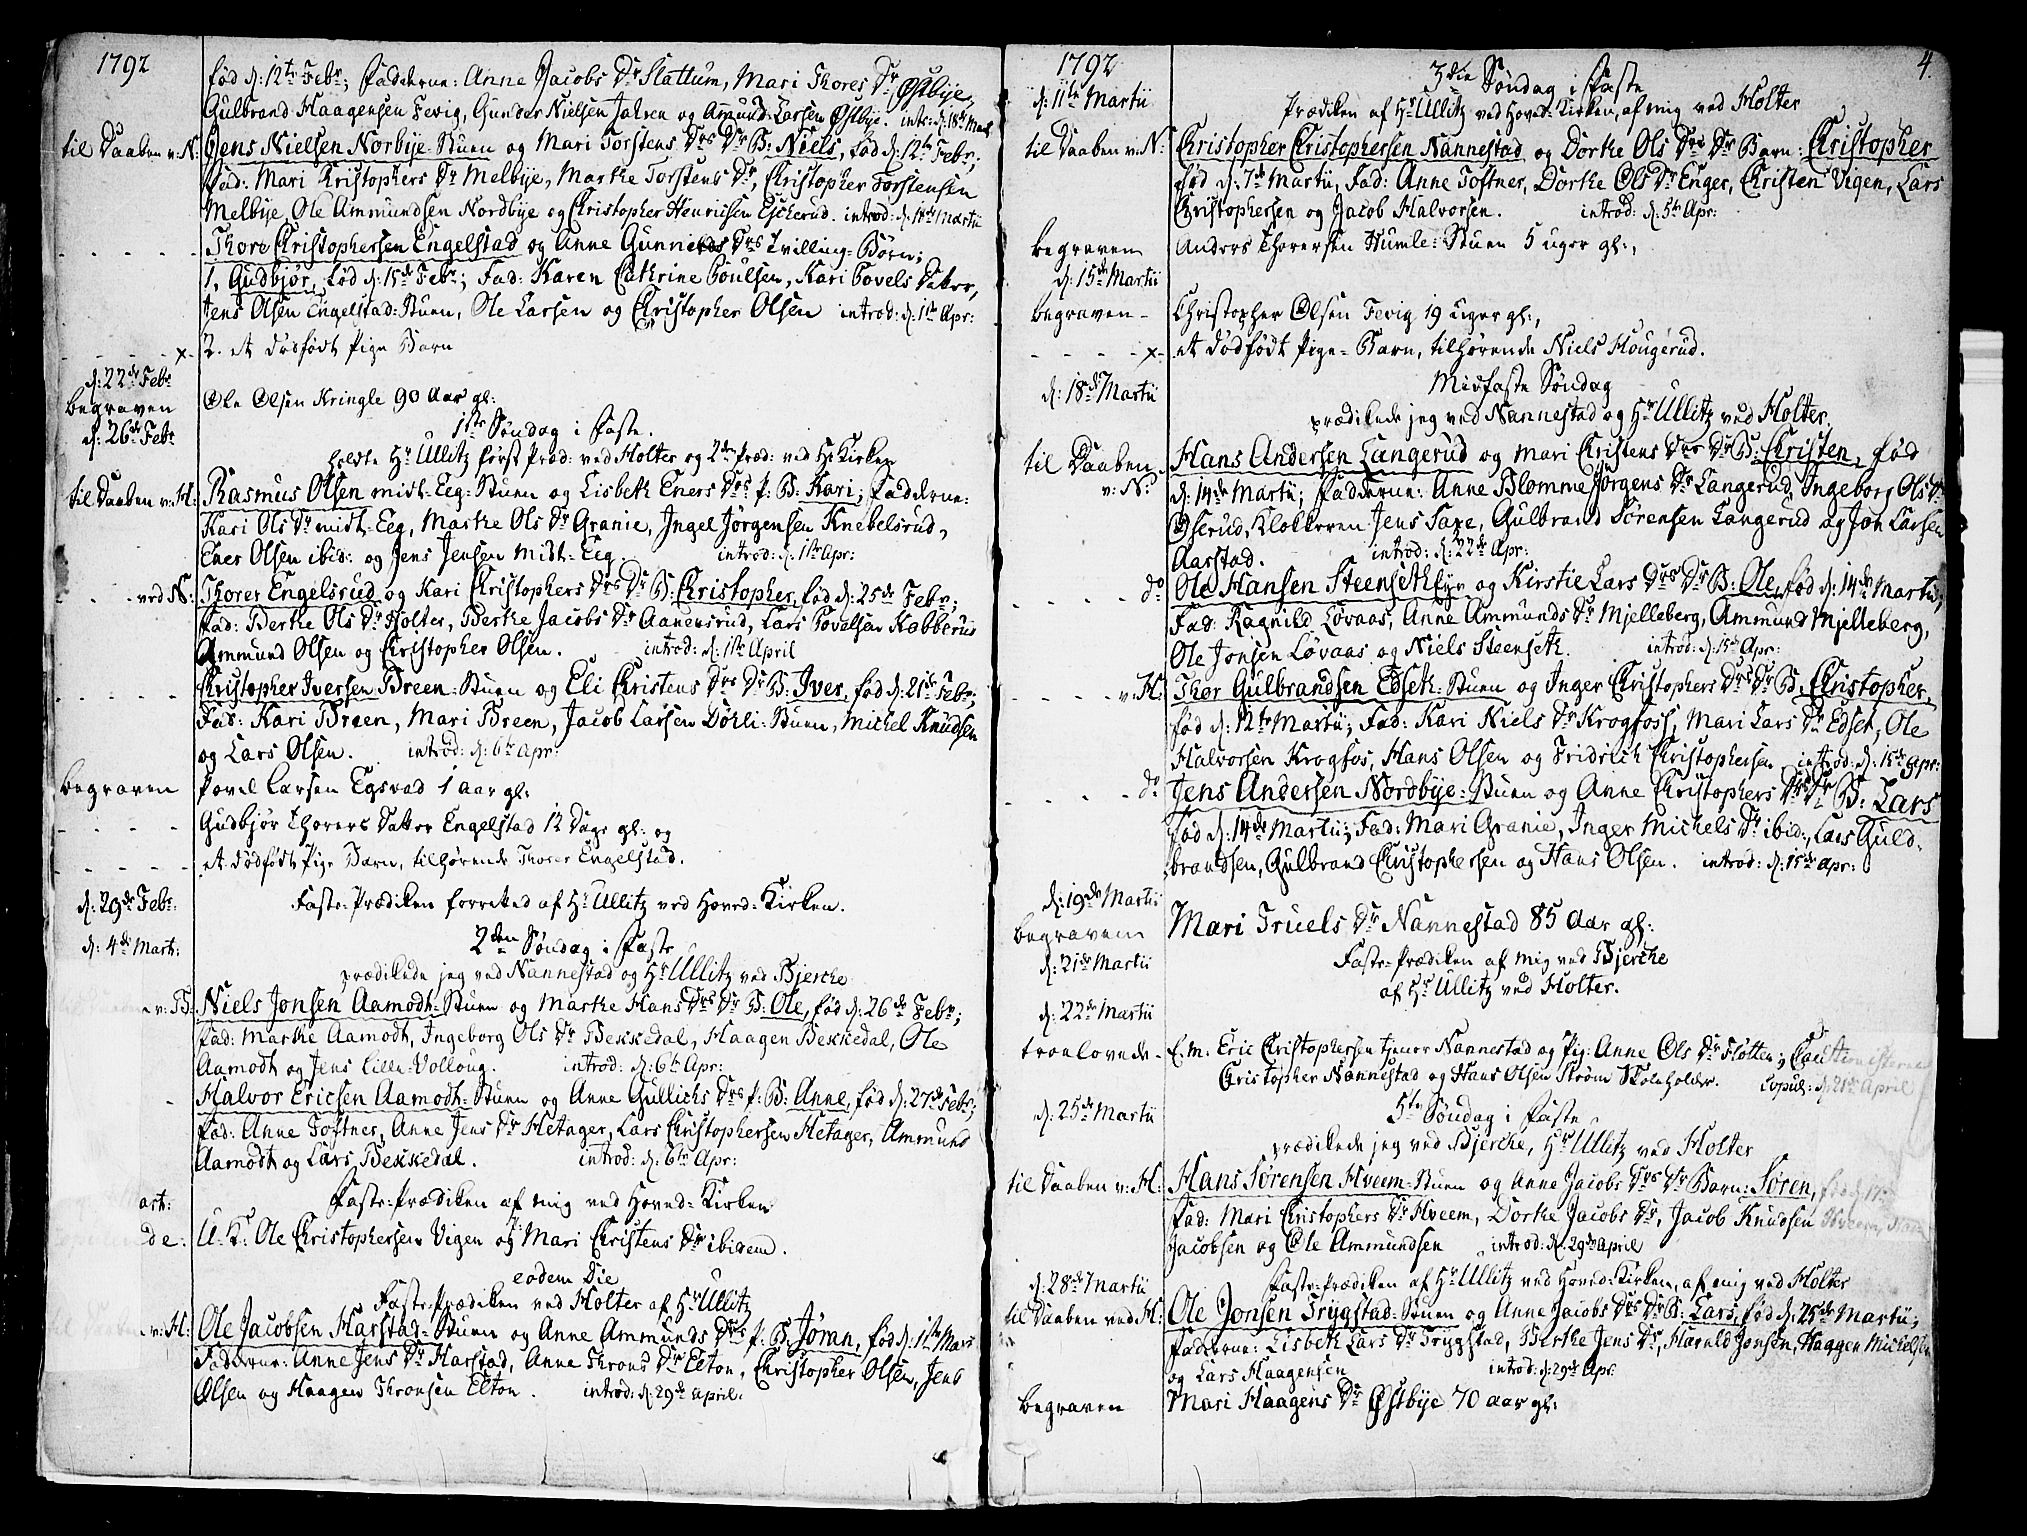 1792
fød d: 12te Febr; Fadderne: Anne Jacobs Dr Slattum, Mari Thores Dr Østbye,
Gulbrand Haagensen Fevig, Gunder Nielsen Jahren og Amund Larsen Østbye. intr: d: 18de Mart
til Daaben v: N: Jens Nielsen Norbye-Stuen og Mari Torstens Drs Dr B: Niels, fød d: 12te Febr;
Fad: Mari Kristophers Dr Melbye, Marthe Torstens Dr, Christopher Torstensen
Melbye, Ole Ammundsen Nordbye og Christopher Henricsen Eskerud. introd: d: 18de Martii
- - - - Thore Christophersen Engelstad og Anne Gunnilds Drs Tvilling-Børn;
1, Gudbjør, fød d: 15de Febr; Fad: Karen Cathrine Poulsen, Kari Povels Datter,
Jens Olsen Engelstad-Stuen, Ole Larsen og Christopher Olsen introd: d: 11te Apr:
- - - - x- 2. et dødfødt Pige Barn
d: 22de Febr
begraven Ole Olsen Kringle 90 Aar gl:
d: 26de Febr 1ste Søndag i Faste.
holdte Hr Ullitz først Præd: ved Holter og 2den Præd: ved H: Kirken
til Daaben v: H: Rasmus Olsen midt-Eeg-Stuen og Lisbeth Eners Drs f: B: Kari; Fadderne:
Kari Ols Dr midt-Eeg, Marthe Ols Dr Granie, Ingel Jørgensen Knebelsrud,
Ener Olsen ibid: og Jens Jensen Midt-Eeg. introd: d: 1ste Apr:
- - - ved N: Thorer Engelsrud og Kari Christophers Drs Dr B: Christopher, fød d: 25de Febr;
Fad: Berthe Ols Dr Holter, Berthe Jacobs Dr Aanensrud, Lars Povelsen Kobberud
Ammund Olsen og Christopher Olsen. introd: d: 11te April
- - - - Christopher Iversen Breen-Stuen og Eli Christens Drs Dr B: Iver, fød d: 21de Febr;
Fad: Kari Breen, Mari Breen, Jacob Larsen Døhli-Stuen, Michel Knudsen
og Lars Olsen. introd: d: 6te Apr:
begraven Povel Larsen Egsvad 1 aar gl:
- - - - Gudbjør Thorers Datter Engelstad 12 Dage gl: og
- - - - et dødfødt Pige Barn, tilhørende Thorer Engelstad.
d: 29de Febr: Faste-Prædiken forrettet af Hr Ullitz ved Hoved-Kirken.
d: 4de Mart: 2den Søndag i Faste
prædikede jeg ved Nannestad og Hr Ullitz ved Bjerche
v: B: Niels Jonsen Aamodt-Stuen og Marthe Hans Drs Dr B: Ole, fød d: 26de Febr;
Fad: Marthe Aamodt, Ingeborg Ols Dr Bekkedal, Haagen Bekkedal, Ole
Aamodt og Jens Lille-Volloug. introd: d: 6te Apr:
- Halvor Ericsen Aamodt-Stuen og Anne Gullichs Drs f: B: Anne, fød d: 27de Febr;
Fad: Anne Tostner, Anne Jens Dr Hetager, Lars Christophersen Hetager, Ammund
Aamodt og Lars Bekkedal. introd: d: 6te Apr:
art: Faste-Prædiken af mig ved Hoved-Kirken
de: U. K: Ole Christophersen Vigen og P: Mari Christens Dr ibidem.
eodem Die
Faste-Prædiken ved Holter af Hr Ullitz
v: H: Ole Jacobsen Harstad-Stuen og Anne Ammunds Drs f: B: Jøran, fød d: 1ste Mart
Fadderne: Anne Jens Dr Harstad, Anne Thrond Dr Elton, Christopher Olsen, Jens
Olsen og Haagen Thronsen Elton. introd: d: 29de april.
1792 4
3die Søndag i Faste
d: 11te Martii Prædiken af Hr Ullitz ved Hoved-Kirken, af mig ved Holter
til Daaben v: N: Christopher Christophersen Nannestad og Dorthe Ols Drs Dr Barn: Christopher
fød d: 7de Martii, Fad: Anne Tostner, Dorthe Ols Dr Enger, Christen Vigen, Lars
Christophersen og Jacob Halvorsen. introd: d: 5te Apr:
begraven Anders Thorersen Humle-Stuen 5 uger gl:,
d: 15de Martii
begraven - Christopher Olsen Fevig 19 Uger gl:,
- - - - x- et dødfødt Pige-Barn, tilhørende Niels Hougerud.
d: 18de Martii Midfaste Søndag
prædikede jeg ved Nannestad og Hr Ullitz ved Holter
til Daaben v: N: Hans Andersen Langerud og Mari Christens Drs Dr B: Christen, fød
d: 14de Martii; Fadderne: Anne Blomme Jørgens Dr Langerud, Ingeborg Ols Dr
Øserud, Klokkeren Jens Saxe, Gulbrand Sørensen Langerud og Jon Larsen
Aarstad. introd: d: 22de Apr:
- - - - do Ole Hansen Steenseth og Kirstie Lars Drs Dr B: Ole, fød d: 14de Martii,
Fad: Ragnild Løvaas, Anne Ammunds Dr Mjelleberg, Ammund Mjelleberg,
Ole Jonsen Løvaas og Niels Steenseth. introd: d: 15de Apr:
- - - - v: H: Thor Gulbrandsen Edseth-Stuen og Inger Christophers Drs Dr B: Christopher,
fød d: 12te Martii; Fad: Kari Niels Dr Krogfoss, Mari Lars Dr Edset, Ole
Halvorsen Krogfos, Hans Olsen og Fridrich Christophersen introd: d: 15de Apr:
- - - - do Jens Andersen Nordbye-Stuen og Anne Christophers Drs Dr B: Lars
fød d: 14de Martii; Fad: Mari Granie, Inger Michels Dr ibid:, Lars Guld-
brandsen, Gulbrand Christophersen og Hans Olsen. introd: d: 15de Apr:
d: 19de Martii
begraven Mari Truels Dr Nannestad 85 Aar gl:
d: 21de Martii Faste-Prædiken af mig ved Bjerche
af Hr Ullitz ved Holter.
d: 22de Martii
troelovede - E. M. Eric Christophersen tjener Nannestad og Pig: Anne Ols Dr Flotten; Cautionisterne
Christopher Nannestad og Hans Olsen Strøm Skoleholder. Copul: d: 21de April
d: 25de Martii 5te Søndag i Faste
prædikede jeg ved Bjerche, Hr Ullitz ved Holter
til Daaben v: H: Hans Sørensen Hveem-Stuen og Anne Jacobs Drs Dr Barn: Søren, fød d: 17
Fad: Mari Christophers Dr Hveem, Dorthe Jacobs Dr, Jacob Knudsen Hveem, Hans
Jacobsen og Ole Ammundsen introd: d: 29de April
d: 28de Martii Faste-Prædiken af Hr Ullitz ved Hoved-Kirken, af mig ved Holter
til Daaben ved H: Ole Jonsen Trygstad-Stuen og Anne Jacobs Drs Dr B: Lars, fød d: 25de Martii;
Fadderne: Lisbeth Lars Dr Trygstad, Berthe Jens Dr, Harald Jonsen, Haagen Michelsen
og Lars Haagensen introd: d: 29de Apr:
begraven Mari Haagens Dr Østbye 70 aar gl: